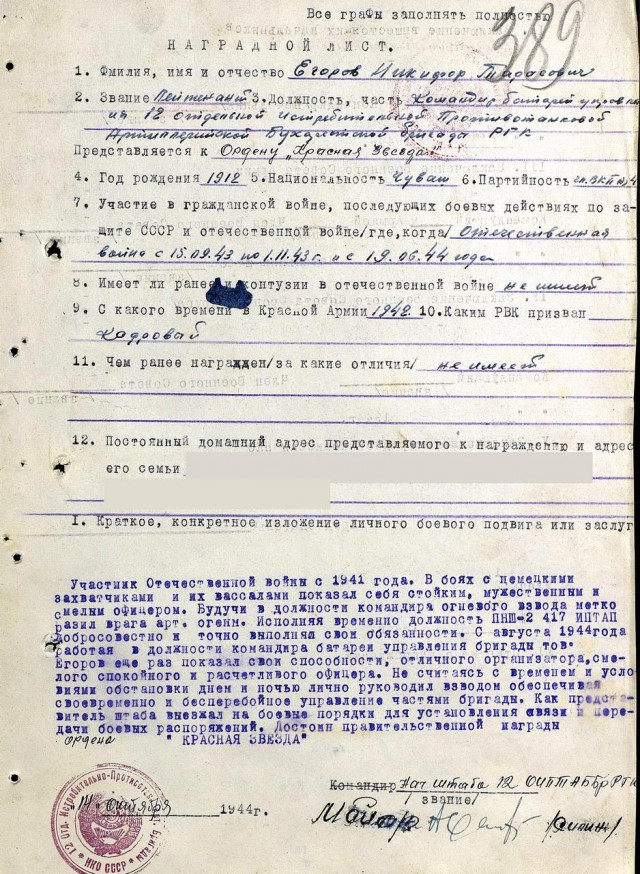 Все графы заполнять полностью
389
НАГРАДНОЙ ЛИСТ.
1. Фамилия, имя и отчество Егоров Никифор Тарасович
2. Звание Лейтенант 3. Должность, часть Командир батареи управлен
ия 12 отдельной Истребительной Противотанковой
Артиллерийской Бухарестской Бригады РГК
Представляется к Ордену "Красная Звезда"
4. Год рождения 1912 5. Национальность Чуваш 6. Партийность чл. ВКП/б/ с 4
7. Участие в гражданской войне, последующих боевых действиях по за-
щите СССР и отечественной войне/где, когда/ Отечественная
война с 15.09.43 по 1.11.43 г. и с 19.06.44 года
8. Имеет ли ранен и контузии в отечественной войне не имеет
9. С какого времени в Красной Армии 1942 10. Каким РВК призван
Кадровый
11. Чем ранее награжден/за какие отличия/ не имеет
12. Постоянный домашний адрес представляемого к награждению и адрес
его семьи
I. Краткое, конкретное изложение личного боевого подвига или заслуг
Участник Отечественной войны с 1941 года. В боях с немецкими
захватчиками и их вассалами показал себя стойким, мужественным и
смелым офицером. Будучи в должности командира огневого взвода метко
разил врага арт. огенм. Исполняя временно должность ПНШ-2 417 ИПТАП
добросовестно и точно выполнял свои обязанности. С августа 1944года
работая в должности командира батареи управления бригады тов.
Егоров еще раз показал свои способности, отличного организатора, сме-
лого спокойного и расчетливого офицера. Не считаясь с временем и усло-
виями обстановки днем и ночью лично руководил взводом обеспечивая
своевременно и бесперебойное управление частями бригады. Как предста-
витель штаба выезжал на боевые порядки для установления связи и пере-
дачи боевых распоряжений. Достоин правительственной награды
ордена "КРАСНАЯ ЗВЕЗДА"
Командир Нач штаба 12 ОИПТАББр РГК
"14" октября 1944г. звание/
Майор
12 Отд. Истребительно-Противотанк. Бригады
НКО СССР